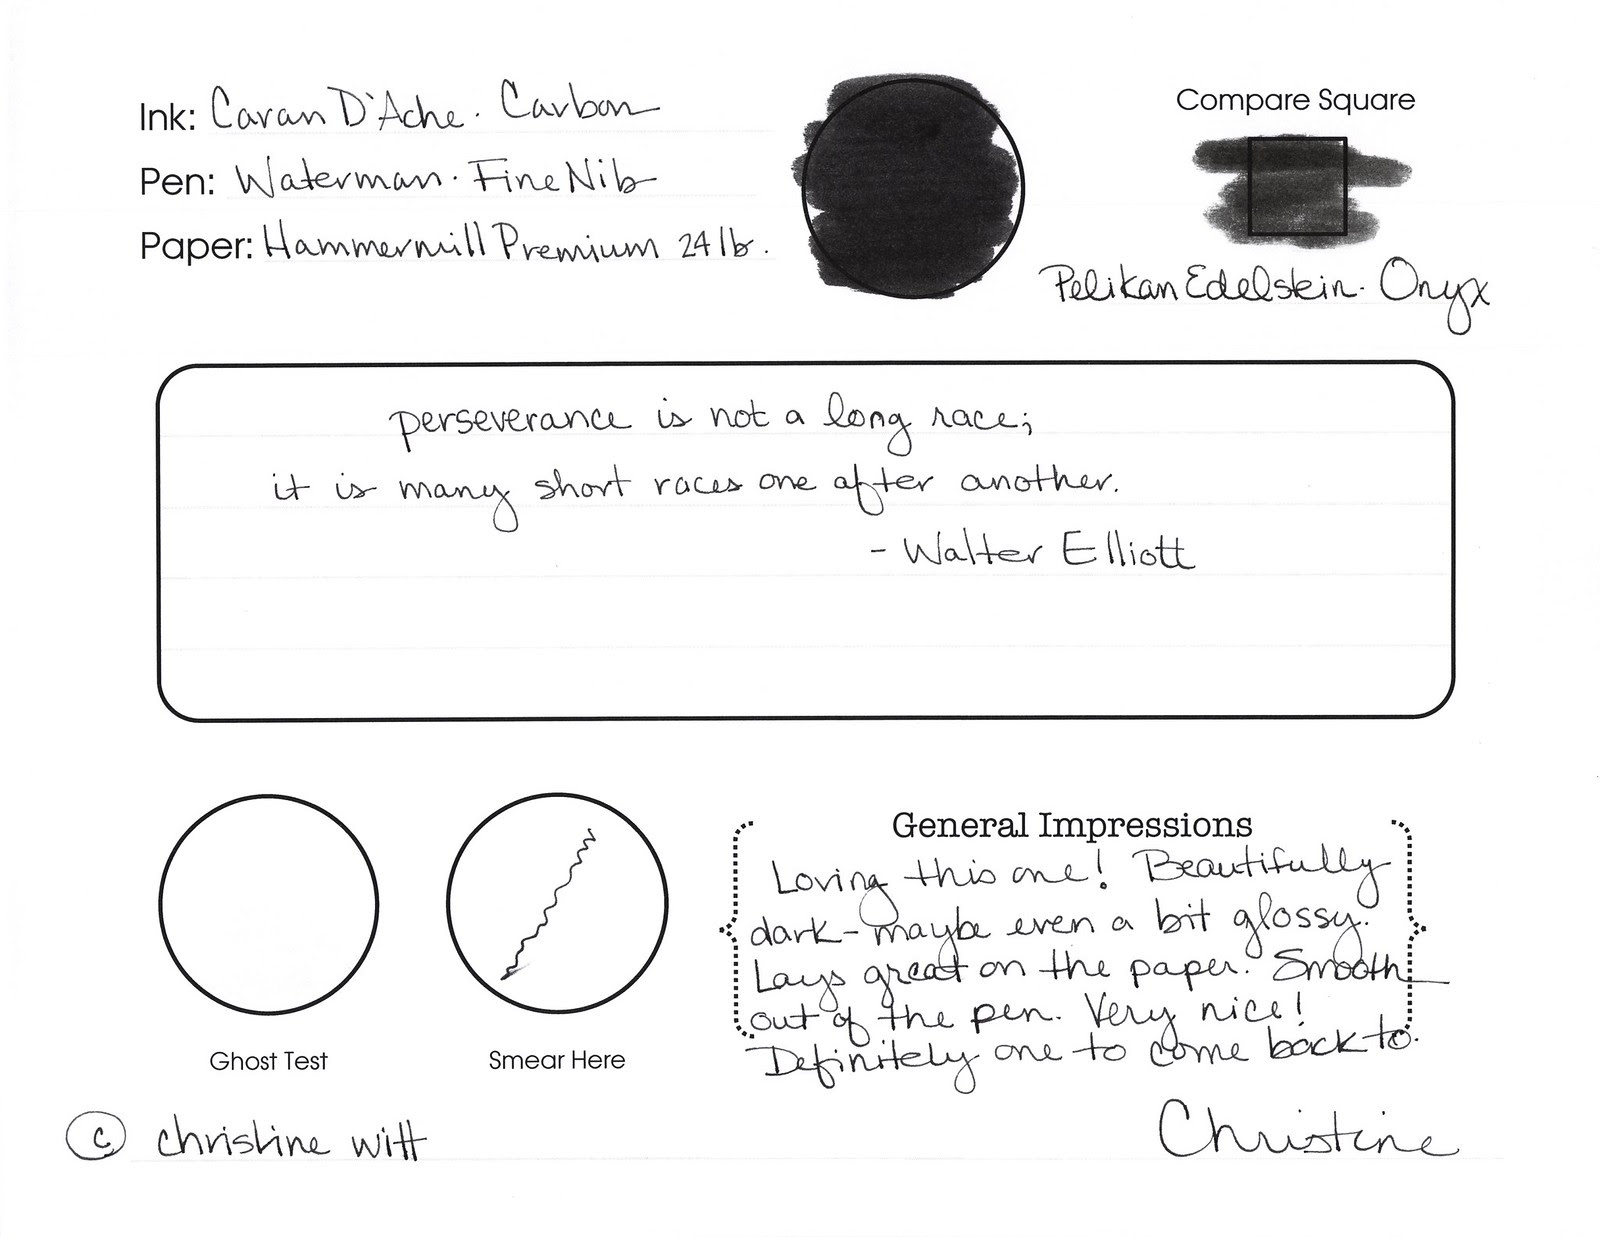 Ink: Caran D'Ache. Carbon
Pen: Waterman. Fine Nib
Paper: Hammermill Premium 24 lb.
Compare Square
Pelikan Edelstein. Onyx
perseverance is not a long race;
it is many short races one after another.
- Walter Elliott
Ghost Test
Smear Here
General Impressions
Loving this one! Beautifully
dark - maybe even a bit glossy.
Lays great on the paper. Smooth
out of the pen. Very nice!
Definitely one to come back to.
© christine witt
Christine